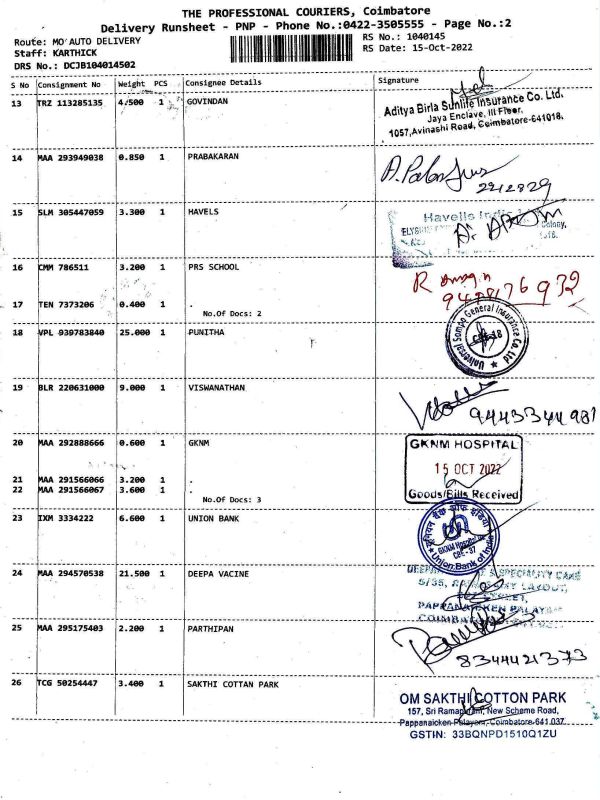 THE PROFESSIONAL COURIERS, Coimbatore
Delivery Runsheet - PNP - Phone No.:0422-3505555 - Page No.:2
Route: MO'AUTO DELIVERY
RS No.: 1040145
Staff: KARTHICK
RS Date: 15-Oct-2022
DRS No.: DCJB104014502
S No Consignment No Weight PCS Consignee Details Signature
13 TRZ 113285135 4.500 1 GOVINDAN
Aditya Birla Sunlife Insurance Co. Ltd.
Jaya Enclave, III Floor,
1057,Avinashi Road, Coimbatore-641018.
14 MAA 293949038 0.850 1 PRABAKARAN
15 SLM 305447059 3.300 1 HAVELS
Havells
16 CMM 786511 3.200 1 PRS SCHOOL
17 TEN 7373206 0.400 1 .
No.Of Docs: 2
18 VPL 939783840 25.000 1 PUNITHA
Universal Sompo General Insurance Co. Ltd
19 BLR 220631000 9.000 1 VISWANATHAN
9443344981
20 MAA 292888666 0.600 1 GKNM
GKNM HOSPITAL
15 OCT 2022
Goods/Bills Received
21 MAA 291566066 3.200 1 .
22 MAA 291566067 3.600 1 .
No.Of Docs: 3
23 IXM 3334222 6.600 1 UNION BANK
यूनियन बैंक ऑफ इंडिया
GKNM Hospital
CBE-37
Union Bank of India
24 MAA 294570538 21.500 1 DEEPA VACINE
& SPECIALITY CARE
5/35,
LAYOUT,
STREET,
PAPPANAICKEN PALAYAM
25 MAA 295175403 2.200 1 PARTHIPAN
8344421373
26 TCG 50254447 3.400 1 SAKTHI COTTAN PARK
OM SAKTHI COTTON PARK
157, Sri Ramapuram, New Scheme Road,
Pappanaicken Palayam, Coimbatore-641 037.
GSTIN: 33BQNPD1510Q1ZU